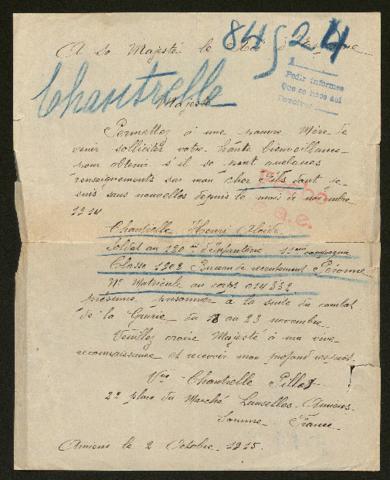 A Sa Majesté le
84524
1
Pedir informes
Que se nace aui
Chantrelle
Majesté
Permettez à une pauvre Mère de
venir solliciter votre haute bienveillance
pour obtenir s'il se peut quelques
renseignements sur mon cher Fils dont je
suis sans nouvelles depuis le mois de novembre
1914
Chantrelle Henri
Soldat au 120me d'Infanterie 11me compagnie
Classe 1908 Bureau de recrutement Péronne
No Matricule au corps 014332
présumé prisonnier à la suite du combat
de la Grurie du 18 au 23 novembre.
Veuillez croire Majesté à ma vive
reconnaissance et recevoir mon profond respect.
Vve Chantrelle Pillot
22 place du Marché Lanselles Amiens
Somme France
Amiens le 2 Octobre 1915.